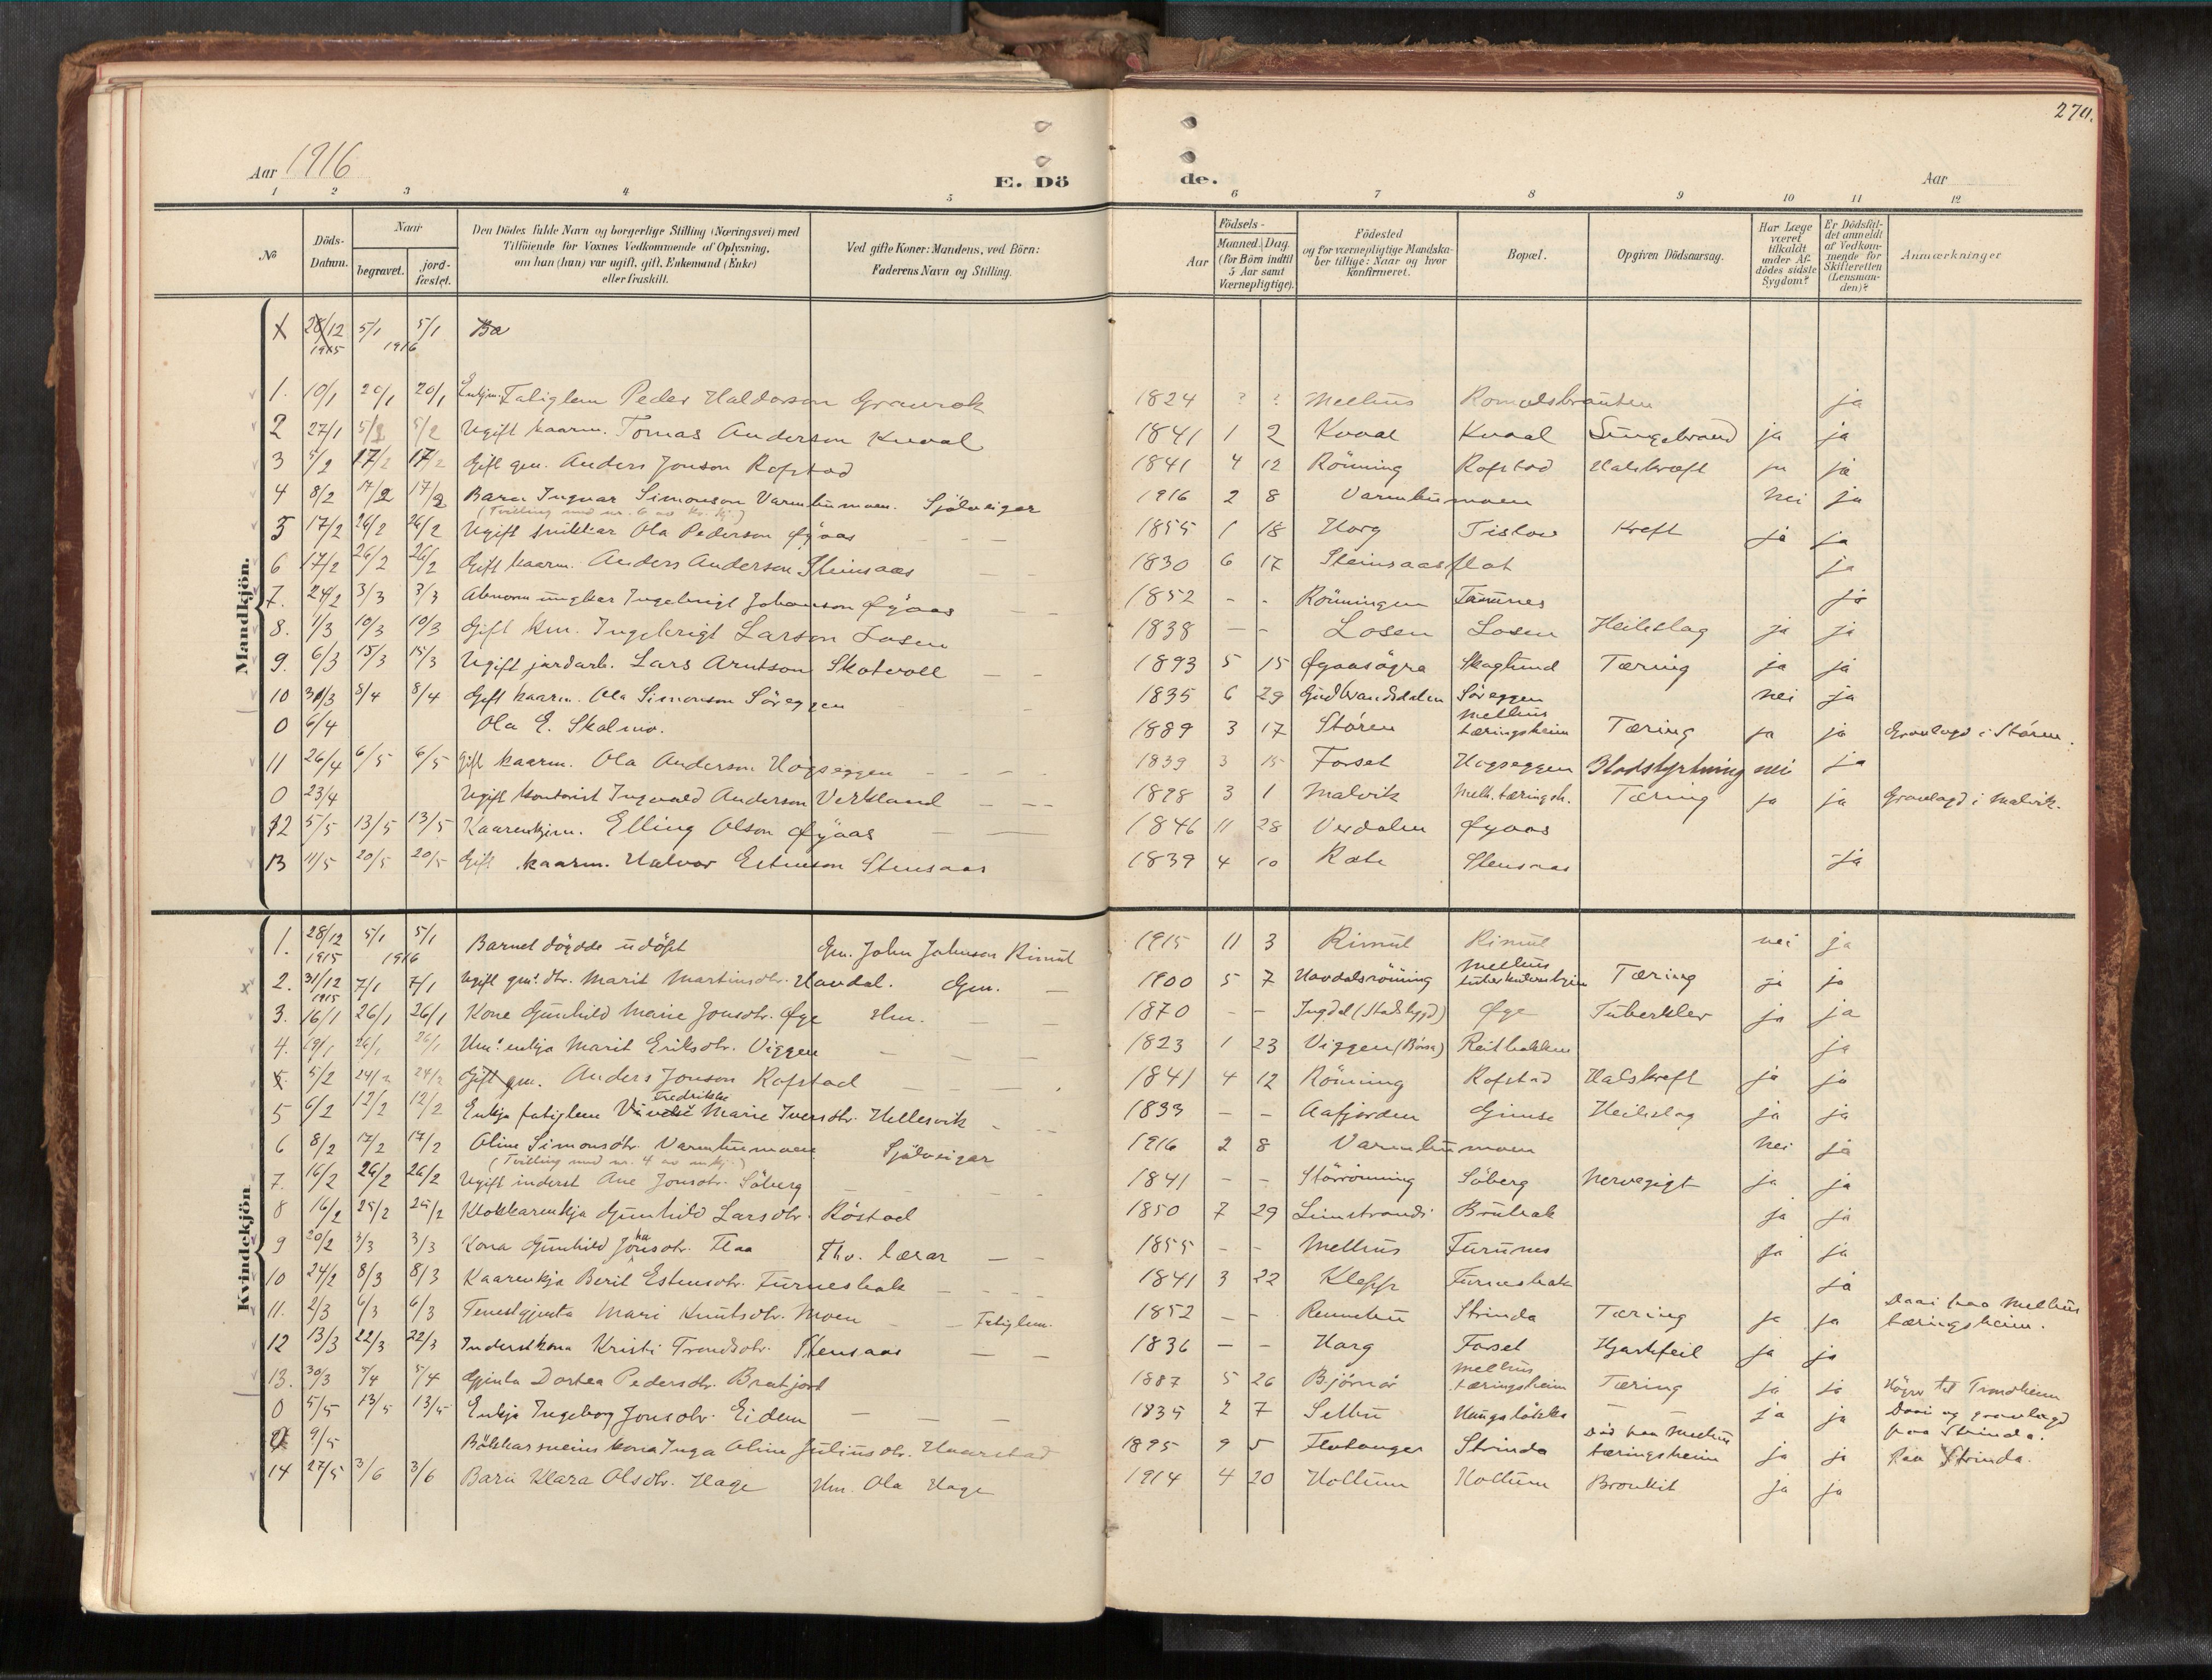 270.
Aar 1916
E. Döde.
Aar
1 2 3 4 5 6 7 8 9 10 11 12
№ Döds-Datum. Naar begravet. jord-fæstet. Den Dödes fulde Navn og borgerlige Stilling (Næringsvei) med Tilföiende for Voxnes Vedkommende af Oplysning, om han (hun) var ugift, gift, Enkemand (Enke) eller fraskilt. Ved gifte Koner: Mandens, ved Börn: Faderens Navn og Stilling. Aar Födsels- Maaned. Dag. (for Börn indtil 5 Aar samt Værnepligtige). Födested og for værnepligtige Mandskaber tillige: Naar og hvor konfirmeret. Bopæl. Opgiven Dödsaarsag. Har Læge været tilkaldt under Afdödes sidste Sygdom? Er Dödsfaldet anmeldt af Vedkommende for Skifteretten (Lensmanden)? Anmærkninger
Mandkjön.
28/12 1915 5/1 1916 5/1 Ba
1. 10/1 20/1 20/1 Enkjm. Fatiglem Peder Haldorson Gravrok 1824 ? ? Melhus ja
2 27/1 5/2 5/2 Ugift kaarm. Tomas Anderson Kvaal 1841 1 2 Kvaal Kvaal Lungebrand ja ja
3 5/2 17/2 17/2 Gift gm. Anders Jonson Rofstad 1841 4 12 Rönning Rofstad Halskræft ja ja
4 8/2 17/2 17/2 Barn Ingvar Simonson Varmbumoen. Sjölveigar 1916 2 8 Varmbumoen nei ja
(Tvilling med nr. 6 av kv. kj.)
5 17/2 26/2 26/2 Ugift snikkar Ola Pederson Øyaas 1855 1 18 Horg Kreft ja ja
6 17/2 26/2 26/2 Gift kaarm. Anders Anderson Steinsaas 1830 6 17 Steinsaasflat ja
7. 24/2 3/3 3/3 Abnorm ungkar Ingebrigt Johanson Øyaas 1852 - - Rönningen ja
8. 1/3 10/3 10/3 Gift km. Ingebrigt Larson Losen 1838 - - Losen Losen Heileslag ja ja
9. 6/3 15/3 15/3 Ugift jardarb. Lars Arntson Skotvoll 1893 5 15 Skoglund Tæring ja ja
10 31/3 8/4 8/4 Gift kaarm. Ola Simonson Söreggen 1835 6 29 Gudbrandsdalen Söreggen nei ja
0 6/4 Ola E. Skolmo. 1889 3 17 Stören Melhus tæringsheim Tæring ja ja Gravlagd i Stören.
11 26/4 6/5 6/5 Gift kaarm. Ola Anderson Hogseggen 1839 3 15 Forset Hogseggen Blodstyrtning nei ja
0 23/4 Ugift kontorist Ingvald Anderson Verkland 1898 3 1 Malvik Melh. tæringsh. Tæring ja ja Gravlagd i Malvik.
12 5/5 13/5 13/5 Kaarenkjm. Elling Olson Øyaas 1846 11 28 Verdalen Øyaas
13 11/5 20/5 20/5 Gift kaarm. Halvor Estenson Stensaas 1839 4 10 Stensaas ja
Kvindekjön
1. 28/12 1915 5/1 1916 5/1 Barnet döydde udöpt Gm. John Johnson Rimul 1915 11 3 Rimul Rimul nei ja
2. 31/12 1915 7/1 7/1 Ugift gm: dtr. Marit Martinsdtr. Havdal. Gm. 1900 5 7 Havdalsrönning Melhus tuberkulosehjem Tæring ja ja
3. 16/1 26/1 26/1 Kone Gunhild Marie Jonsdtr. Øye Hm. 1870 - - Ingdal (Stadsbygd) Øye Tuberkler ja ja
4. 19/1 26/1 26/1 Hm: enkja Marit Eriksdtr. Viggen 1823 1 23 Viggen (Börsa) Reitbakken ja
5. 5/2 24/2 24/2 Gift gm. Anders Jonson Rofstad 1841 4 12 Rönning Rofstad Halskreft ja ja
5 6/2 12/2 12/2 Enkja fatiglem Fredrikke Marie Iversdtr. Hellesvik 1833 - - Aafjorden Gimse Heileslag ja ja
6 8/2 17/2 17/2 Oline Simonsdtr. Varmbumoen Sjölveigar 1916 2 8 Varmbumoen nei ja
(Tvilling med nr. 4 av mkj.)
7. 16/2 26/2 26/2 Ugift inderst Ane Jonsdtr. Söberg 1841 - - Störrönning Söberg Nervegigt ja ja
8 16/2 25/2 25/2 Klokkarenkja Gunhild Larsdtr. Röstad 1850 7 29 Leinstrand Brubak ja ja
9 20/2 3/3 3/3 Kona Gunhild Johnsdtr. Flaa Fhv. lærar 1855 - - Melhus Furunes ja ja
10 24/2 8/3 8/3 Kaarenkja Berit Estensdtr. Furnesbak 1841 3 22 Klepp Furnesbak ja
11. 2/3 6/3 6/3 Tenestgjenta Mari Knutsdtr. Moen Fatiglem. 1852 - - Rennebu Strinda Tæring ja ja Daai paa Melhus tæringsheim.
12 13/3 22/3 22/3 Inderstkona Kristi Trondsdtr. Stensaas 1836 - - Horg Forset Hjartefeil ja ja
13. 30/3 5/4 5/4 Gjenta Dortea Pedersdtr. Bratjord 1887 5 26 Björnör Melhus tæringsheim Tæring ja ja
0 5/5 13/5 13/5 Enkja Ingeborg Jonsdtr. Eidem 1835 2 7 Selbu - ja ja Daai og gravlagd paa Strinda.
0 9/5 Bökkarsveins kona Inga Oline Juliusdtr. Haarstad 1895 9 5 Flatanger Strinda Död paa Melhus tæringsheim ja ja Paa Strinda.
14 27/5 3/6 3/6 Barn Klara Olsdtr. Hage Hm. Ola Hage 1914 4 20 Hollum Hollum Bronkit ja ja